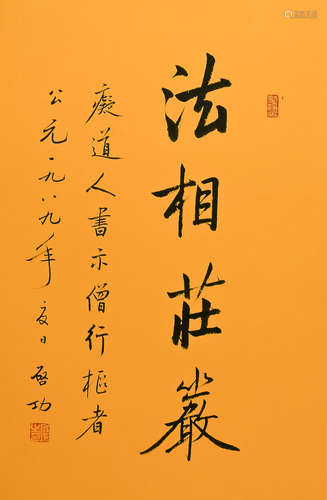 法相莊嚴
癡道人書示僧行樞者
公元一九八九年夏日啟功